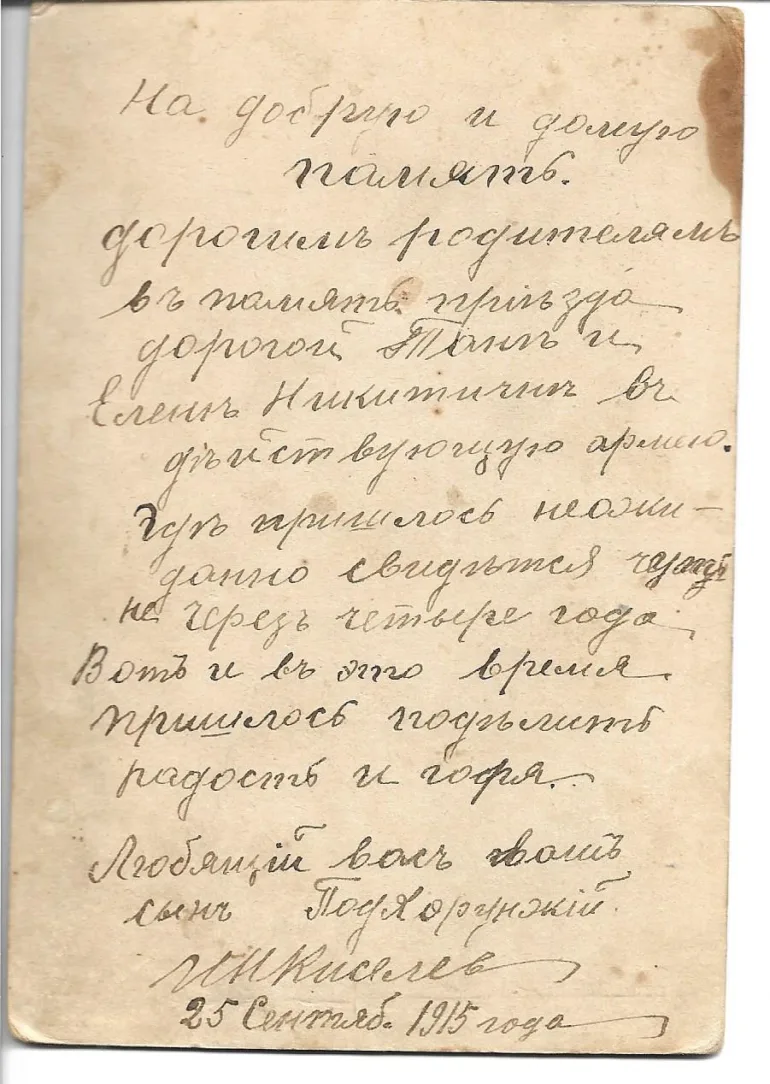 На добрую и домую
память.
дорогимъ родителямъ
въ память пріѣзда
дорогой Танѣ и
Еленѣ Никитичнѣ въ
дѣйствующую армею.
Гдѣ пришлось неожи-
данно свидѣтся
не черезъ четыре года
Вотъ и въ это время
пришлось подѣлитъ
радость и горя.
Любящій васъ вашъ
сынъ Подхорунжій.
Киселев
25 Сентяб. 1915 года